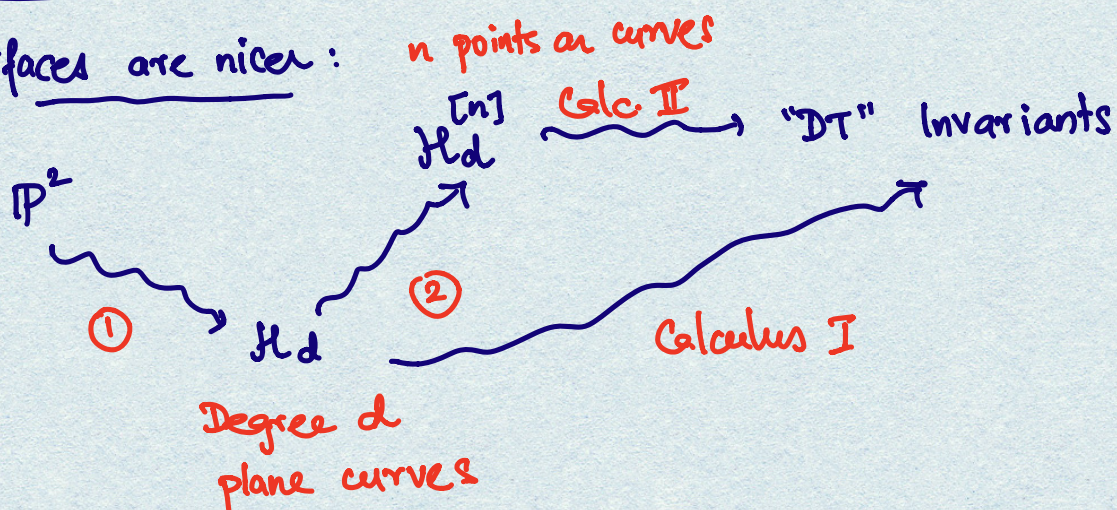 faces are nicer :
n points on curves
H_d^[n] Calc. II "DT" Invariants
P²
① ②
H_d Calculus I
Degree d
plane curves